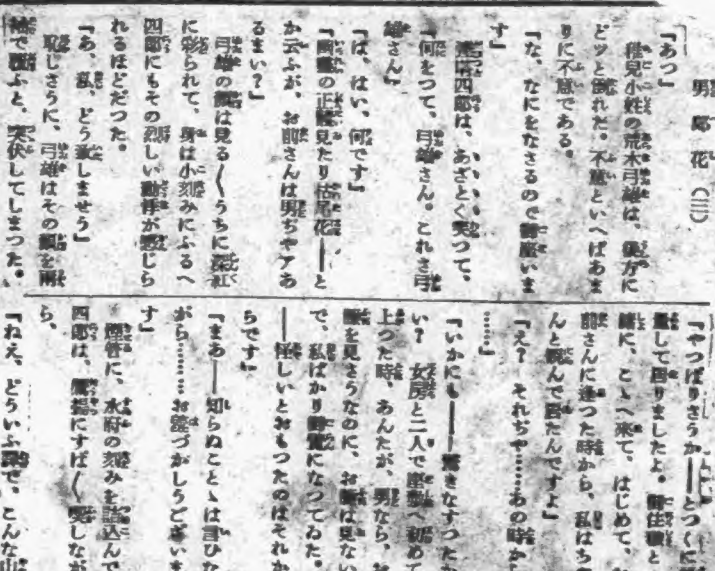 男郎花(三)
「あつ」
稚見小姓の荒木弓雄は、後方に
どツと倒れた。不意といへばあま
りに不意である。
「な、なにをなさるので御座いま
す」
四郎は、あざとく笑つて、
「何をつて、弓雄さん。これさ弓
雄さん」
「は、はい、何です」
「の正體見たり枯尾花――と
か云ふが、お前さんは男ぢやアあ
るまい?」
弓雄の顔は見る〳〵うちに深紅
に彩られて、身は小刻みにふるへ
四郎にもその烈しい動悸が感じら
れるほどだつた。
「あ、私、どう致しませう」
恥しさうに、弓雄はその顔を両
袖で覆ふと、突伏してしまつた。
「やつぱりさうか――とつくに
して居りましたよ。御住職と
緒に、こゝへ来て、はじめて、お
前さんに逢つた時から、私はち
んと睨んで居たんですよ」
「え? それぢや……あの時か
……」
「いかにも――驚きなすつたか
い? 女房と二人で座敷へ初めて
上つた時、あんたが、男なら、お
を見さうなのに、お は見ない
で、私ばかり御覧になつてゐた。
――怪しいとおもつたのはそれか
らです」
「まあ――知らぬことゝは言ひな
がら……お羞づかしうございま
す」
煙管に、水府の刻みを詰込んで
四郎は、すぱ〳〵喫しなが
ら、
「ねえ、どういふ訳で、こんな山